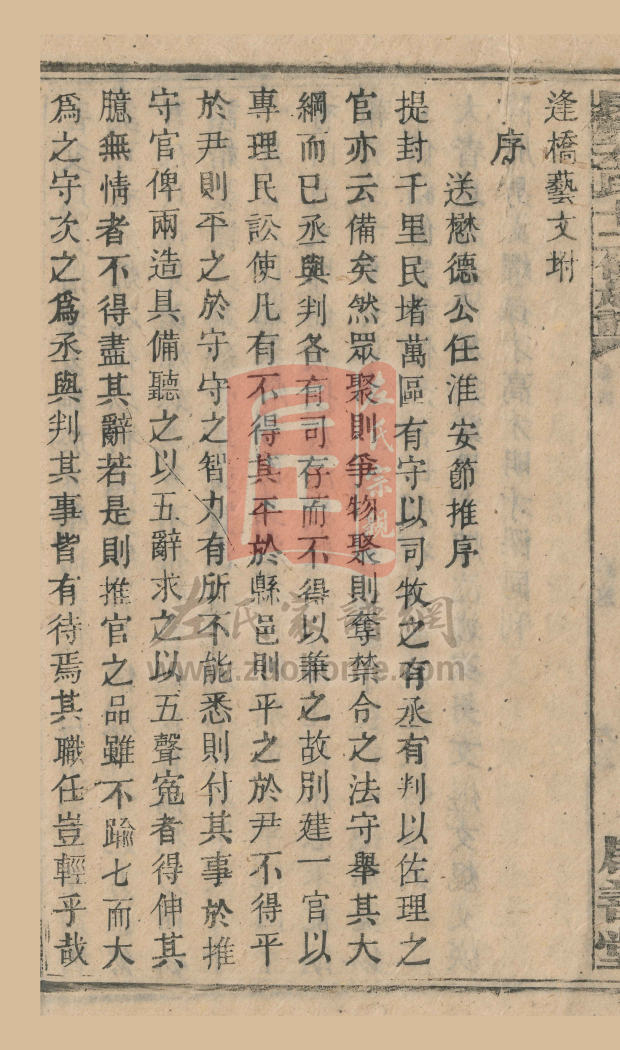 逢橋藝文坿
序
送懋德公任淮安節推序
提封千里民堵萬區有守以司牧之有丞有判以佐理之
官亦云備矣然眾聚則爭物聚則奪禁令之法守舉其大
綱而已丞與判各有司存而不得以兼之故別建一官以
專理民訟使凡有不得其平於縣邑則平之於尹不得平
於尹則平之於守守之智力有所不能悉則付其事於推
守官俾兩造具備聽之以五辭求之以五聲寃者得伸其
臆無情者不得盡其辭若是則推官之品雖不踰七而大
爲之守次之爲丞與判其事皆有待焉其職任豈輕乎哉
左氏宗親
左氏家譜網
www.zuohome.com